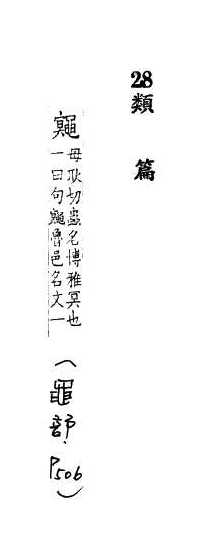 28類篇
鼆
母耿切蟲名博雅冥也
一曰句鼆魯邑名文一
(黽部.P506)